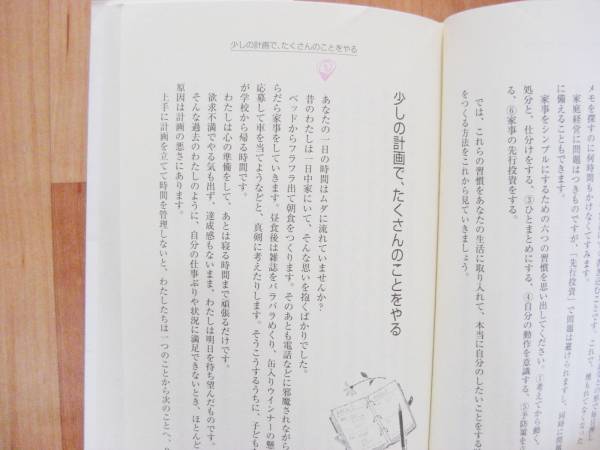 メモを探すのに何時間もかけなくてすみます。
家庭経営に問題はつきものですが、「先行投資」で問題は避けられますし、同時に問題
に備えることもできます。
家事をシンプルにするための六つの習慣を思い出してください。①考えてから動く、
処分と、仕分けをする、③ひとまとめにする、④自分の動作を意識する、⑤予防策を
る、⑥家事の先行投資をする。
では、これらの習慣をあなたの生活に取り入れて、本当に自分のしたいことをする
をつくる方法をこれから見ていきましょう。
少しの計画で、たくさんのことをやる
少しの計画で、たくさんのことをやる
あなたの一日の時間はムダに流れていませんか?
昔のわたしは一日中家にいて、そんな思いを抱くばかりでした。
ベッドからフラフラ出て朝食をつくります。そのあとも電話などに邪魔されながら
らだら家事をしていきます。昼食後は雑誌をパラパラめくり、缶入りウインナーの懸
応募して車を当てようなどと、真剣に考えたりします。そうこうするうちに、子ども
が学校から帰る時間です。
わたしは心の準備をして、あとは寝る時間まで頑張るだけです。
欲求不満でやる気も出ず、達成感もないまま、わたしは明日を待ち望んだものです。
そんな過去のわたしのように、自分の仕事ぶりや状況に満足できないとき、ほとんど
原因は計画の悪さにあります。
上手に計画を立てて時間を管理しないと、わたしたちは一つのことから次のことへ、